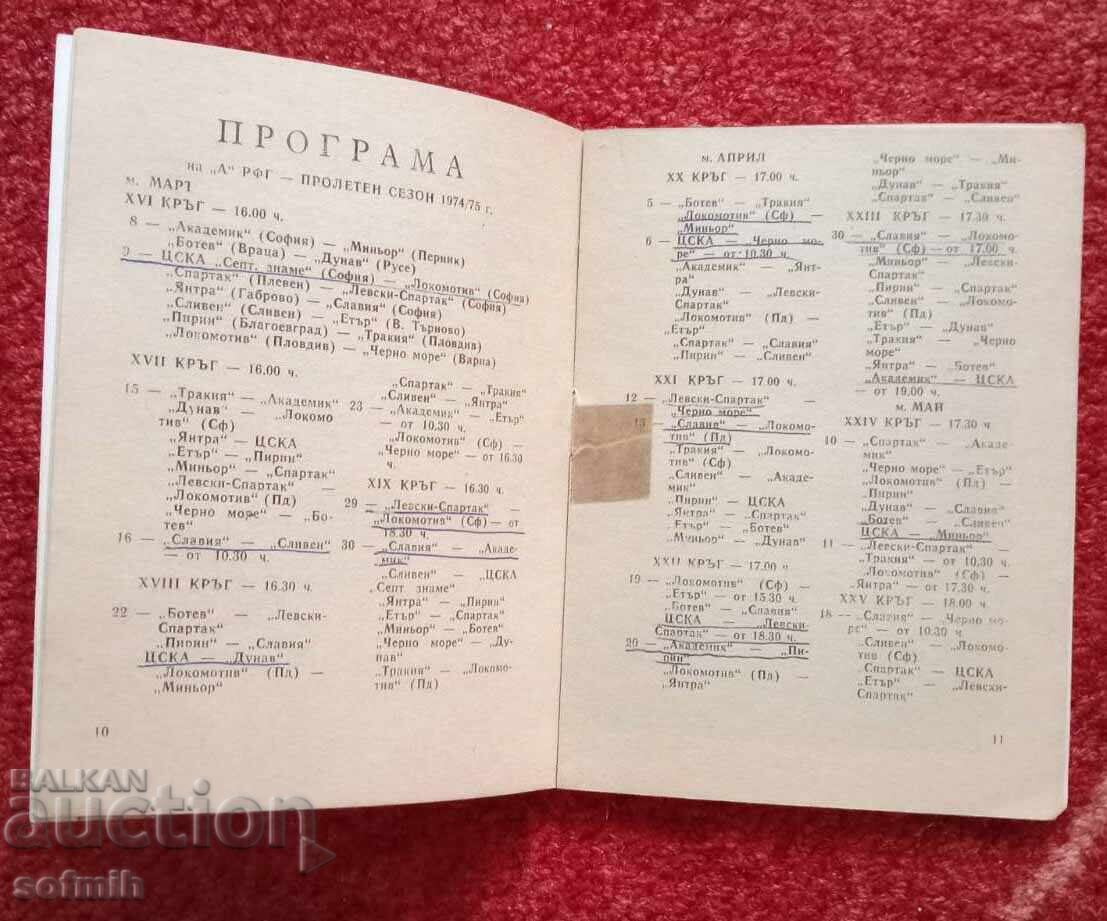 ПРОГРАМА
на „А“ РФГ — ПРОЛЕТЕН СЕЗОН 1974/75 г.
м. МАРТ
XVI КРЪГ — 16.00 ч.
8 — „Академик“ (София) — „Миньор“ (Перник)
„Ботев“ (Враца) — „Дунав“ (Русе)
9 — ЦСКА „Септ. знаме“ (София) — „Локомотив“ (София)
„Спартак“ (Плевен) — „Левски-Спартак“ (София)
„Янтра“ (Габрово) — „Славия“ (София)
„Сливен“ (Сливен) — „Етър“ (В. Търново)
„Пирин“ (Благоевград) — „Тракия“ (Пловдив)
„Локомотив“ (Пловдив) — „Черно море“ (Варна)
XVII КРЪГ — 16.00 ч.
15 — „Тракия“ — „Академик“
„Дунав“ — „Локомо
тив“ (Сф)
„Янтра“ — ЦСКА
„Етър“ — „Пирин“
„Миньор“ — „Спартак“
„Левски-Спартак“ —
„Локомотив“ (Пд)
„Черно море“ — „Бо-
тев“
16 — „Славия“ — „Сливен“
— от 10.30 ч.
XVIII КРЪГ — 16.30 ч.
22 — „Ботев“ — „Левски-
Спартак“
„Пирин“ — „Славия“
ЦСКА — „Дунав“
„Локомотив“ (Пд) —
„Миньор“
„Спартак“ — „Тракия“
„Сливен“ — „Янтра“
23 — „Академик“ — „Етър“
— от 10.30 ч.
„Локомотив“ (Сф) —
„Черно море“ — от 16.30
ч.
XIX КРЪГ — 16.30 ч.
29 — „Левски-Спартак“ —
„Локомотив“ (Сф) — от
18.30 ч.
30 — „Славия“ — „Акаде-
мик“
„Сливен“ — „ЦСКА
Септ. знаме“
„Янтра“ — „Пирин“
„Етър“ — „Спартак“
„Миньор“ — „Ботев“
„Черно море“ — „Ду-
нав“
„Тракия“ — „Локомо-
тив“ (Пд)
10
м. АПРИЛ
XX КРЪГ — 17.00 ч.
5 — „Ботев“ — „Тракия“
„Локомотив“ (Сф) —
„Миньор“
6 — ЦСКА — „Черно мо-
ре“ — от 10.30 ч.
„Академик“ — „Янт-
ра“
„Дунав“ — „Левски-
Спартак“
„Локомотив“ (Пд) —
„Етър“
„Спартак“ — „Славия“
„Пирин“ — „Сливен“
XXI КРЪГ — 17.00 ч.
12 — „Левски-Спартак“ —
„Черно море“
13 — „Славия“ — „Локомо-
тив“ (Пд)
„Тракия“ — „Локомо-
тив“ (Сф)
„Сливен“ — „Акаде-
мик“
„Пирин“ — ЦСКА
„Янтра“ — „Спартак“
„Етър“ — „Ботев“
„Миньор“ — „Дунав“
XXII КРЪГ — 17.00 ч.
19 — „Локомотив“ (Сф) —
„Етър“ — от 15.30 ч.
„Ботев“ — „Славия“
ЦСКА — „Левски-
Спартак“ — от 18.30 ч.
20 — „Академик“ — „Пи-
рин“
„Локомотив“ (Пд) —
„Янтра“
„Черно море“ — „Ми-
ньор“
„Дунав“ — „Тракия“
„Спартак“ — „Сливен“
XXIII КРЪГ — 17.30 ч.
30 — „Славия“ — „Локомо-
тив“ (Сф) — от 17.00 ч.
„Миньор“ — „Левски-
Спартак“
„Пирин“ — „Спартак“
„Сливен“ — „Локомо-
тив“ (Пд)
„Етър“ — „Дунав“
„Тракия“ — „Черно
море“
„Янтра“ — „Ботев“
„Академик“ — ЦСКА
— от 19.00 ч.
м. МАЙ
XXIV КРЪГ — 17.30 ч.
10 — „Спартак“ — „Акаде-
мик“
„Черно море“ — „Етър“
„Локомотив“ (Пд) —
„Пирин“
„Дунав“ — „Славия“
„Ботев“ — „Сливен“
ЦСКА — „Миньор“
11 — „Левски-Спартак“ —
„Тракия“ — от 10.30 ч.
„Локомотив“ (Сф) —
„Янтра“ — от 17.30 ч.
XXV КРЪГ — 18.00 ч.
18 — „Славия“ — „Черно мо-
ре“ — от 10.30 ч.
„Сливен“ — „Локомо-
тив“ (Сф)
„Спартак“ — ЦСКА
„Етър“ — „Левски-
Спартак“
11
BALKAN
auction
sofmih